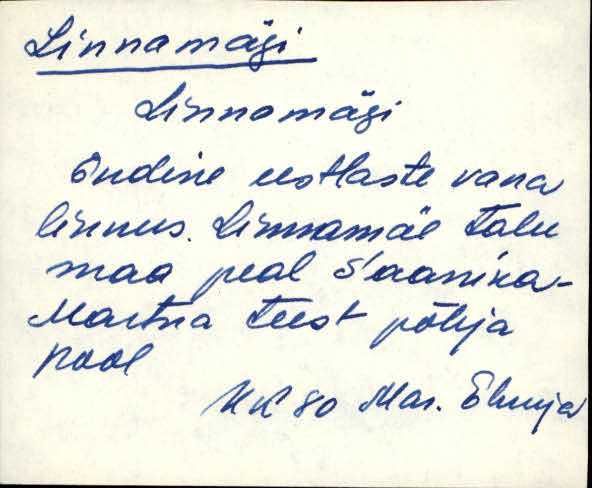 Linnamägi
Linnamägi
Endine eestlaste vana
linnus. Linnamäe talu
maa peal Saanika-
Martna teest põhja
pool
KK 80 Mar.